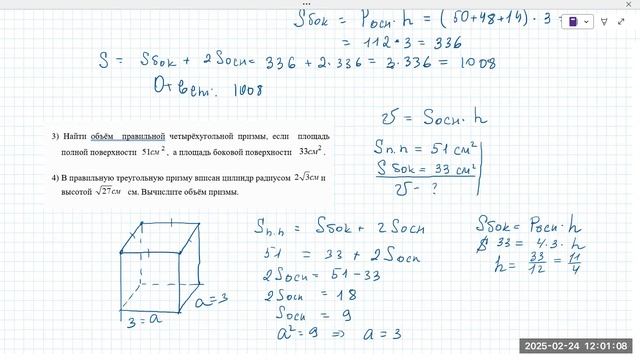 Sбок = Pосн · h = (50+48+14) · 3
= 112 · 3 = 336
S = Sбок + 2Sосн = 336 + 2 · 336 = 3 · 336 = 1008
Ответ: 1008
3) Найти объём правильной четырёхугольной призмы, если площадь
полной поверхности 51см², а площадь боковой поверхности 33см².
4) В правильную треугольную призму вписан цилиндр радиусом 2√3см и
высотой √27см см. Вычислите объём призмы.
V = Sосн · h
Sп.п = 51 см²
Sбок = 33 см²
V - ?
a=3
3=a
Sп.п = Sбок + 2Sосн
51 = 33 + 2Sосн
2Sосн = 51-33
2Sосн = 18
Sосн = 9
a²=9 ⇒ a=3
Sбок = Pосн · h
33 = 4·3 · h
h = 33/12 = 11/4
2025-02-24 12:01:08